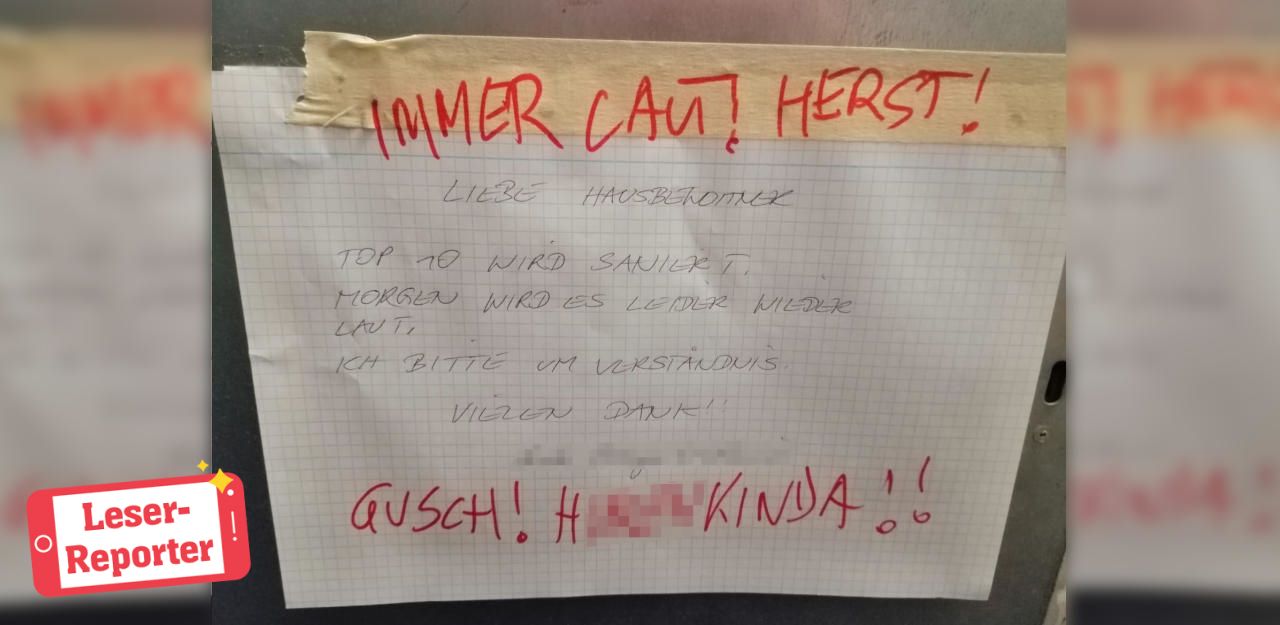 IMMER LAUT! HERST!
LIEBE HAUSBEWOHNER
TOP 10 WIRD SANIERT.
MORGEN WIRD ES LEIDER WIEDER
LAUT,
ICH BITTE UM VERSTÄNDNIS.
VIELEN DANK!!
GUSCH! H KINDA!!
Leser-
Reporter